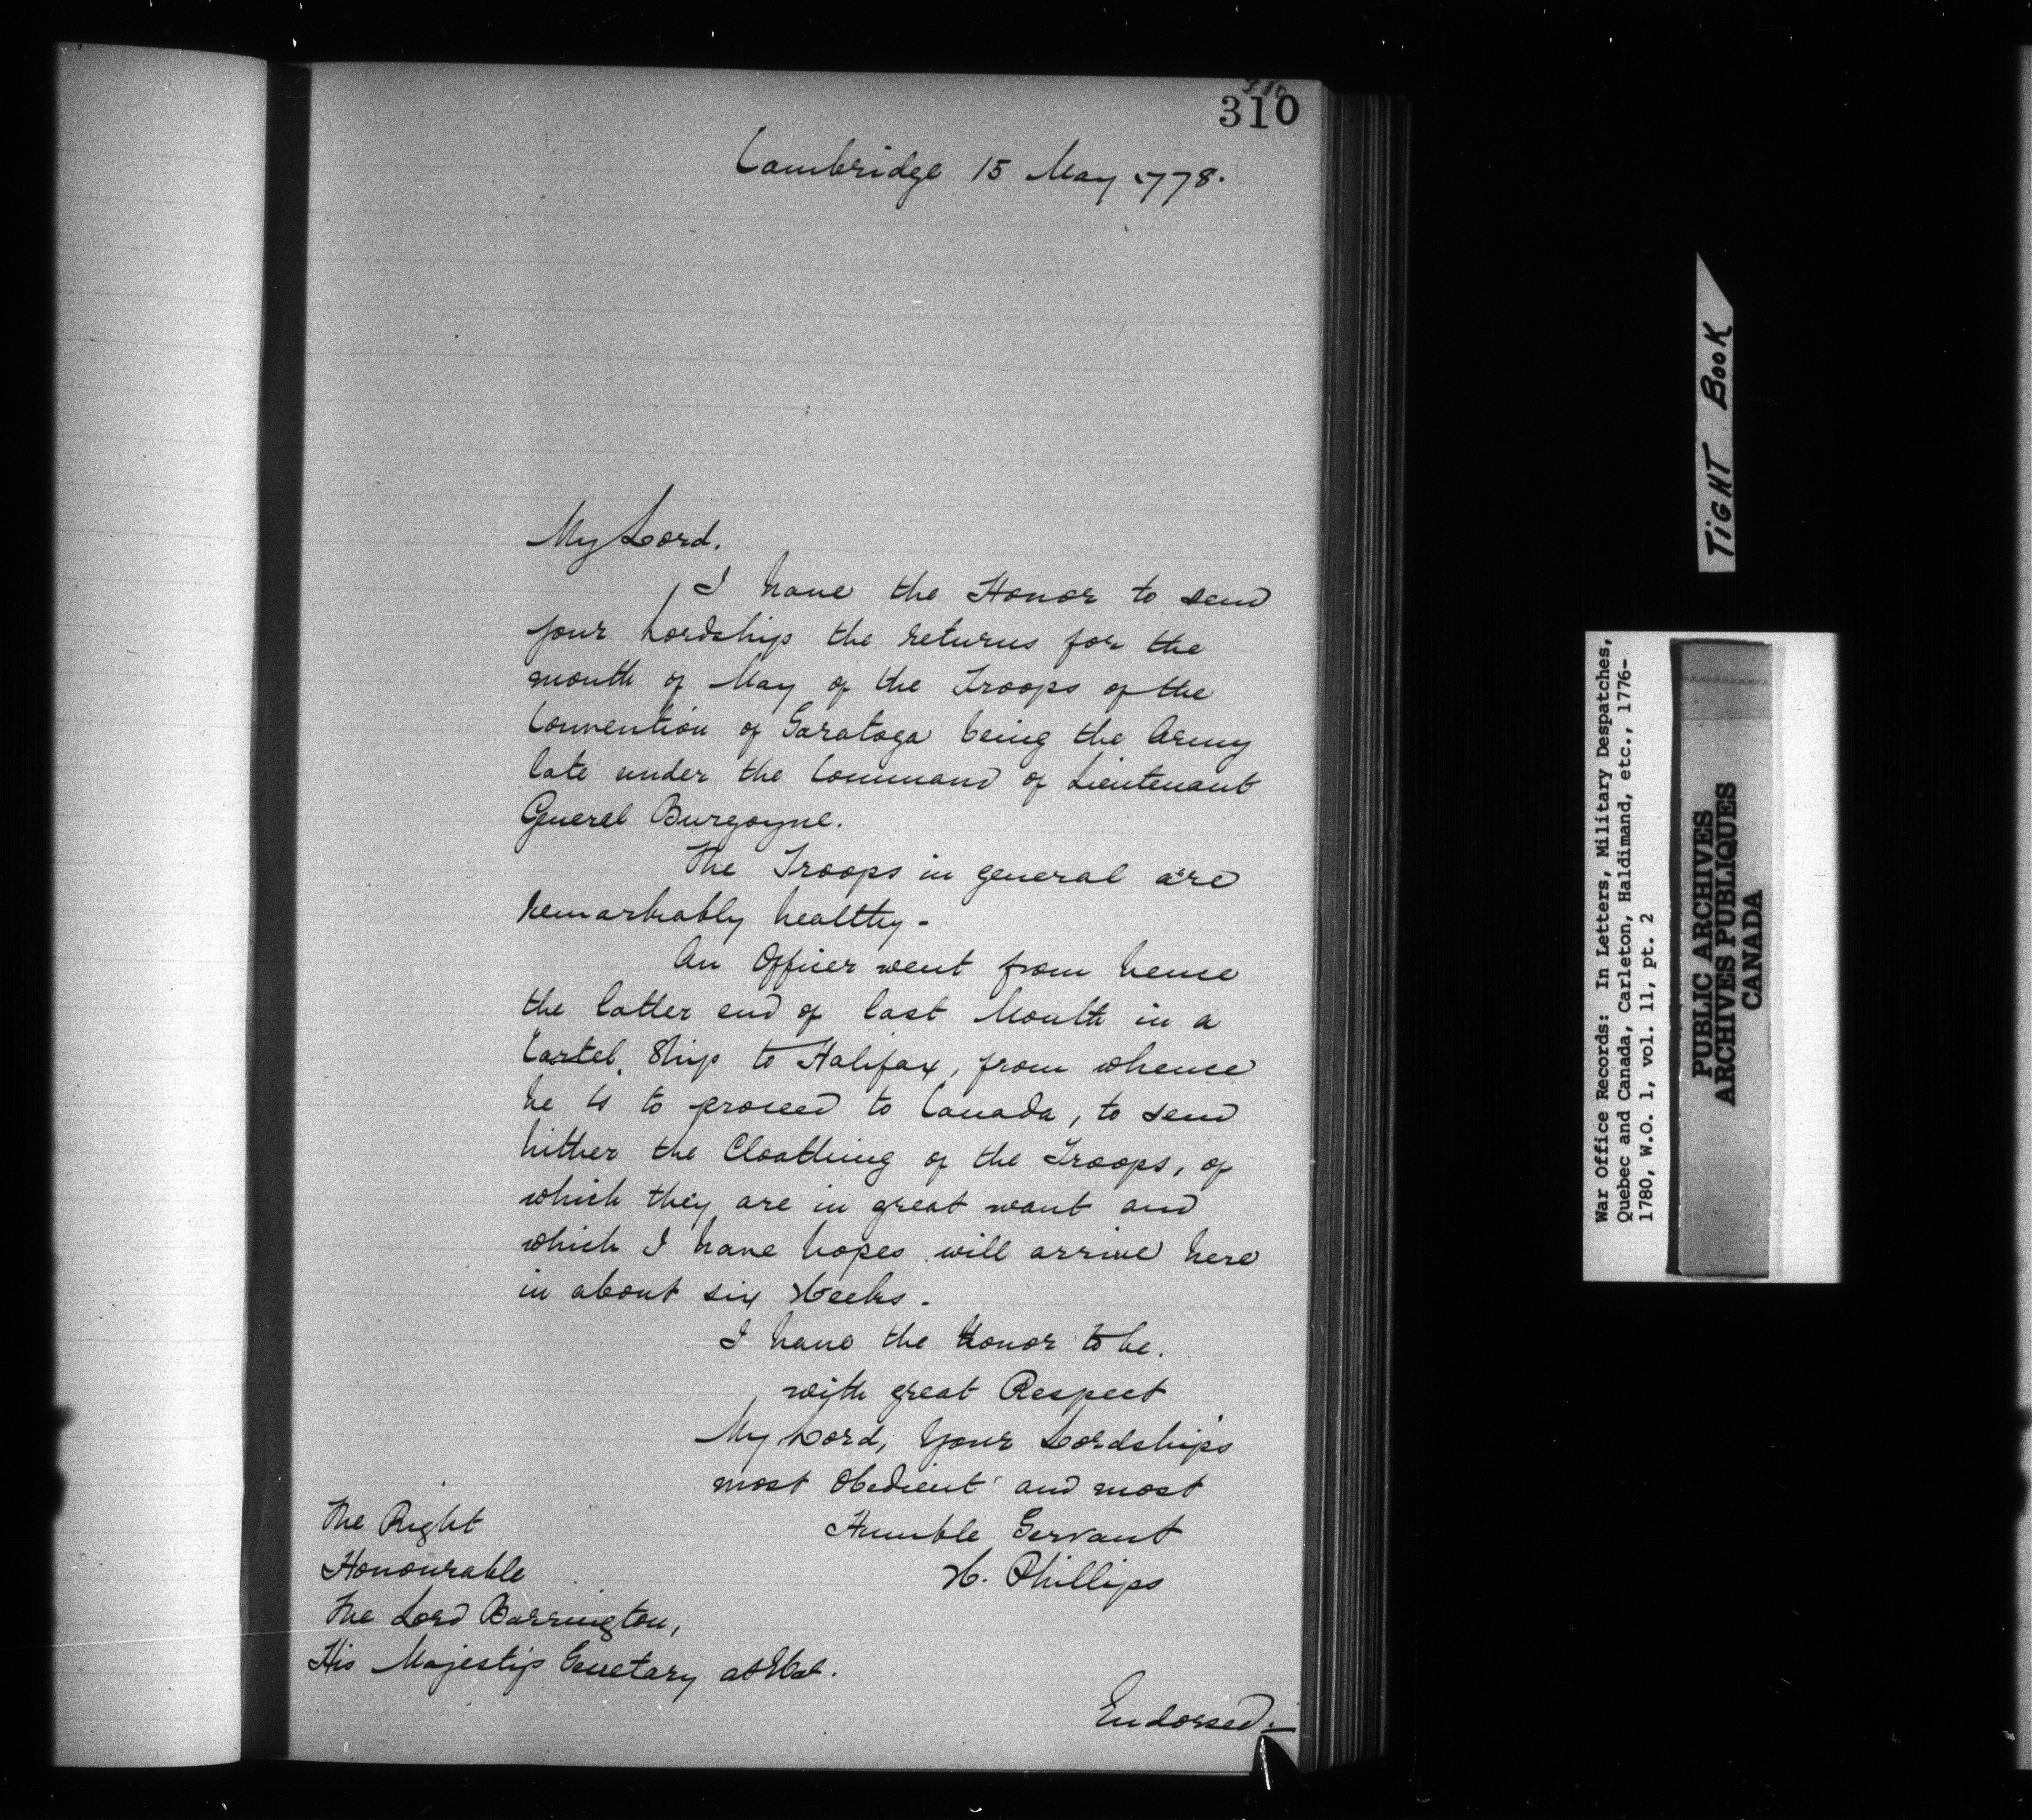 310
310
Cambridge 15 May 1778.
My Lord.
I have the Honor to send
your Lordship the returns for the
month of May of the Troops of the
Convention of Saratoga being the Army
late under the Command of Lieutenant
General Burgoyne.
The Troops in general are
remarkably healthy -
An Officer went from hence
the latter end of last Month in a
Cartel Ship to Halifax, from whence
he is to proceed to Canada, to send
hither the Cloathing of the Troops, of
which they are in great want and
which I have hopes will arrive here
in about six Weeks.
I have the Honor to be.
with great Respect
My Lord, Your Lordship's
most Obedient and most
Humble Servant
W. Phillips
The Right
Honourable
The Lord Barrington,
His Majesty's Secretary at War.
Endorsed.—
TIGHT BOOK
War Office Records: In Letters, Military Despatches,
Quebec and Canada, Carleton, Haldimand, etc., 1776-
1780, W.O. 1, vol. 11, pt. 2
PUBLIC ARCHIVES
ARCHIVES PUBLIQUES
CANADA